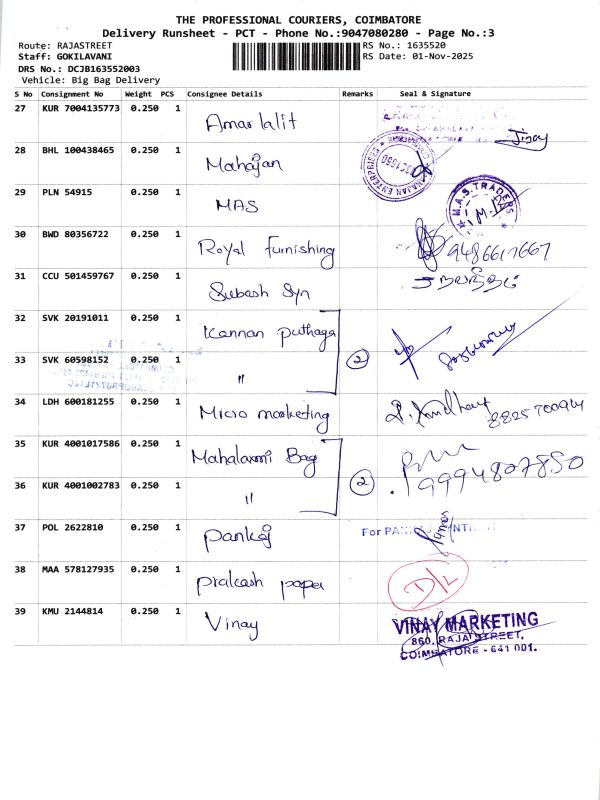 THE PROFESSIONAL COURIERS, COIMBATORE
Delivery Runsheet - PCT - Phone No.:9047080280 - Page No.:3
Route: RAJASTREET
RS No.: 1635520
Staff: GOKILAVANI
RS Date: 01-Nov-2025
DRS No.: DCJB163552003
Vehicle: Big Bag Delivery
S No Consignment No Weight PCS Consignee Details Remarks Seal & Signature
27 KUR 7004135773 0.250 1 Amar lalit
28 BHL 100438465 0.250 1 Mahajan
29 PLN 54915 0.250 1 MAS M.A.S. TRADERS
30 BWD 80356722 0.250 1 Royal furnishing
31 CCU 501459767 0.250 1 Subash Syn
32 SVK 20191011 0.250 1 Kannan puthaga
33 SVK 60598152 0.250 1 " 2
34 LDH 600181255 0.250 1 Micro marketing
35 KUR 4001017586 0.250 1 Mahalaxmi Bag
36 KUR 4001002783 0.250 1 " 2 9994807850
37 POL 2622810 0.250 1 Pankaj For
38 MAA 578127935 0.250 1 prakash paper D/L
39 KMU 2144814 0.250 1 Vinay
VINAY MARKETING
860, RAJA STREET,
COIMBATORE - 641 001.